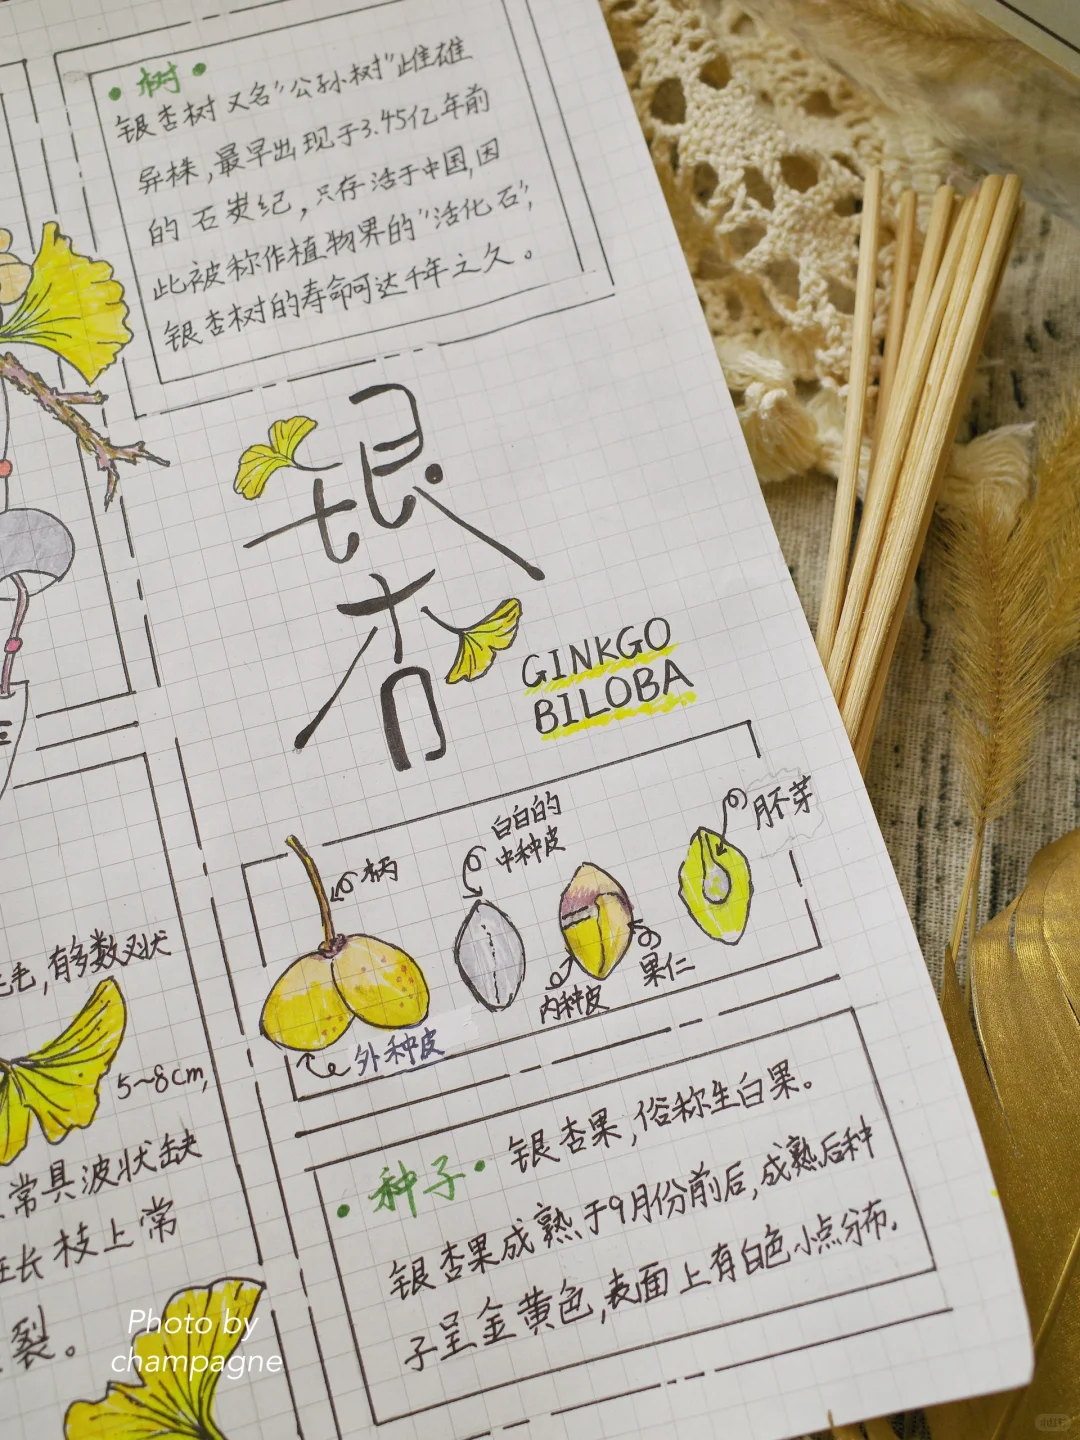 •树•
银杏树 又名"公孙树"雌雄
异株,最早出现于3.45亿年前
的石炭纪,只存活于中国,因
此被称作植物界的"活化石",
银杏树的寿命可达千年之久。
银
杏
GINKGO
BILOBA
柄
白白的
中种皮
胚芽
果仁
内种皮
外种皮
毛,有多数叉状
5~8cm,
常具波状缺
在长枝上常
裂。
•种子• 银杏果,俗称生白果。
银杏果成熟于9月份前后,成熟后种
子呈金黄色,表面上有白色小点分布.
Photo by
champagne
小红书